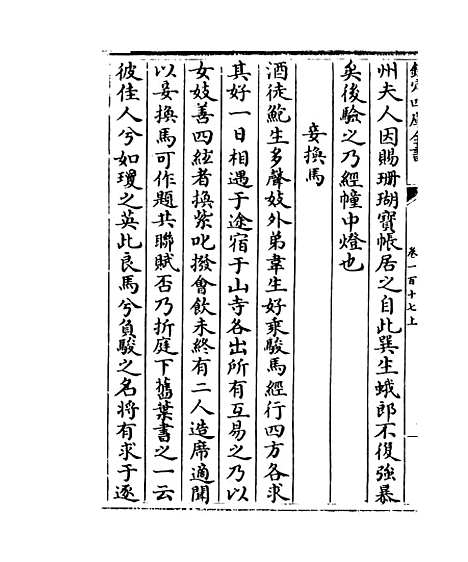 欽定四庫全書
卷一百十七上
州夫人因賜珊瑚寳帳居之自此巽生蛾郎不復強暴
矣後驗之乃經幢中燈也
妾換馬
酒徒鮑生多聲妓外弟韋生好乘駿馬經行四方各求
其好一日相遇于途宿于山寺各出所有互易之乃以
女妓善四絃者換紫叱撥會飲未終有二人造席適聞
以妾換馬可作題共聯賦否乃折庭下舊葉書之一云
彼佳人兮如瓊之英此良馬兮負駿之名將有求于逐